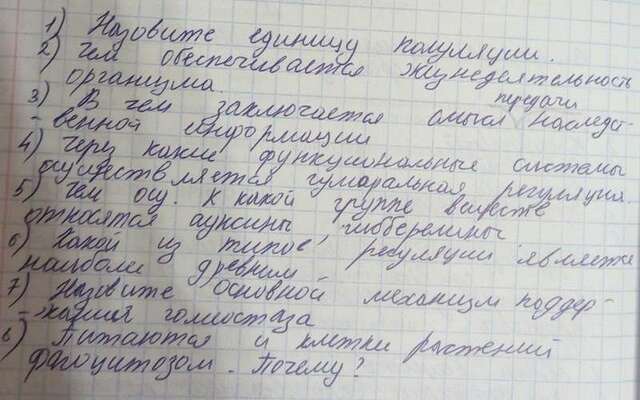 1) Назовите единицу популяции.
2) Чем обеспечивается жизнедеятельность
организма.
3) В чем заключается смысл передачи наследст-
-венной информации
4) Через какие функциональные системы
осуществляется гуморальная регуляция.
5) Чем осу. К какой группе веществ
относятся ауксины, гибберелины
6) Какой из типов регуляции является
наиболее древним
7) Назовите основной механизм поддер-
-жания гомеостаза
8) Питаются и клетки растений
фагоцитозом. Почему?